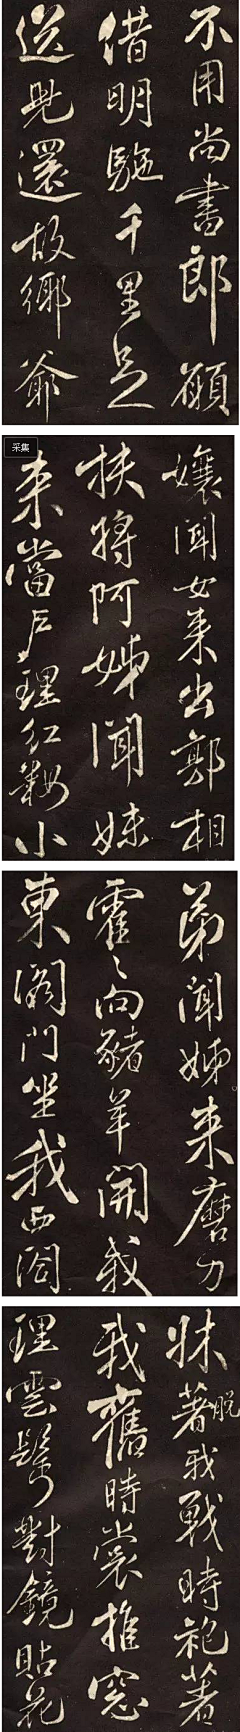 不用尚書郎願
借明駞千里足
送兒還故鄉爺
采集
孃聞女来出郭相
扶將阿姊聞妹
来當戶理紅粧小
弟聞姊来磨刀
霍〻向豬羊開我
東閣門坐我西閣
牀脫著我戰時袍著
我舊時裳推窓
理雲鬢對鏡貼花